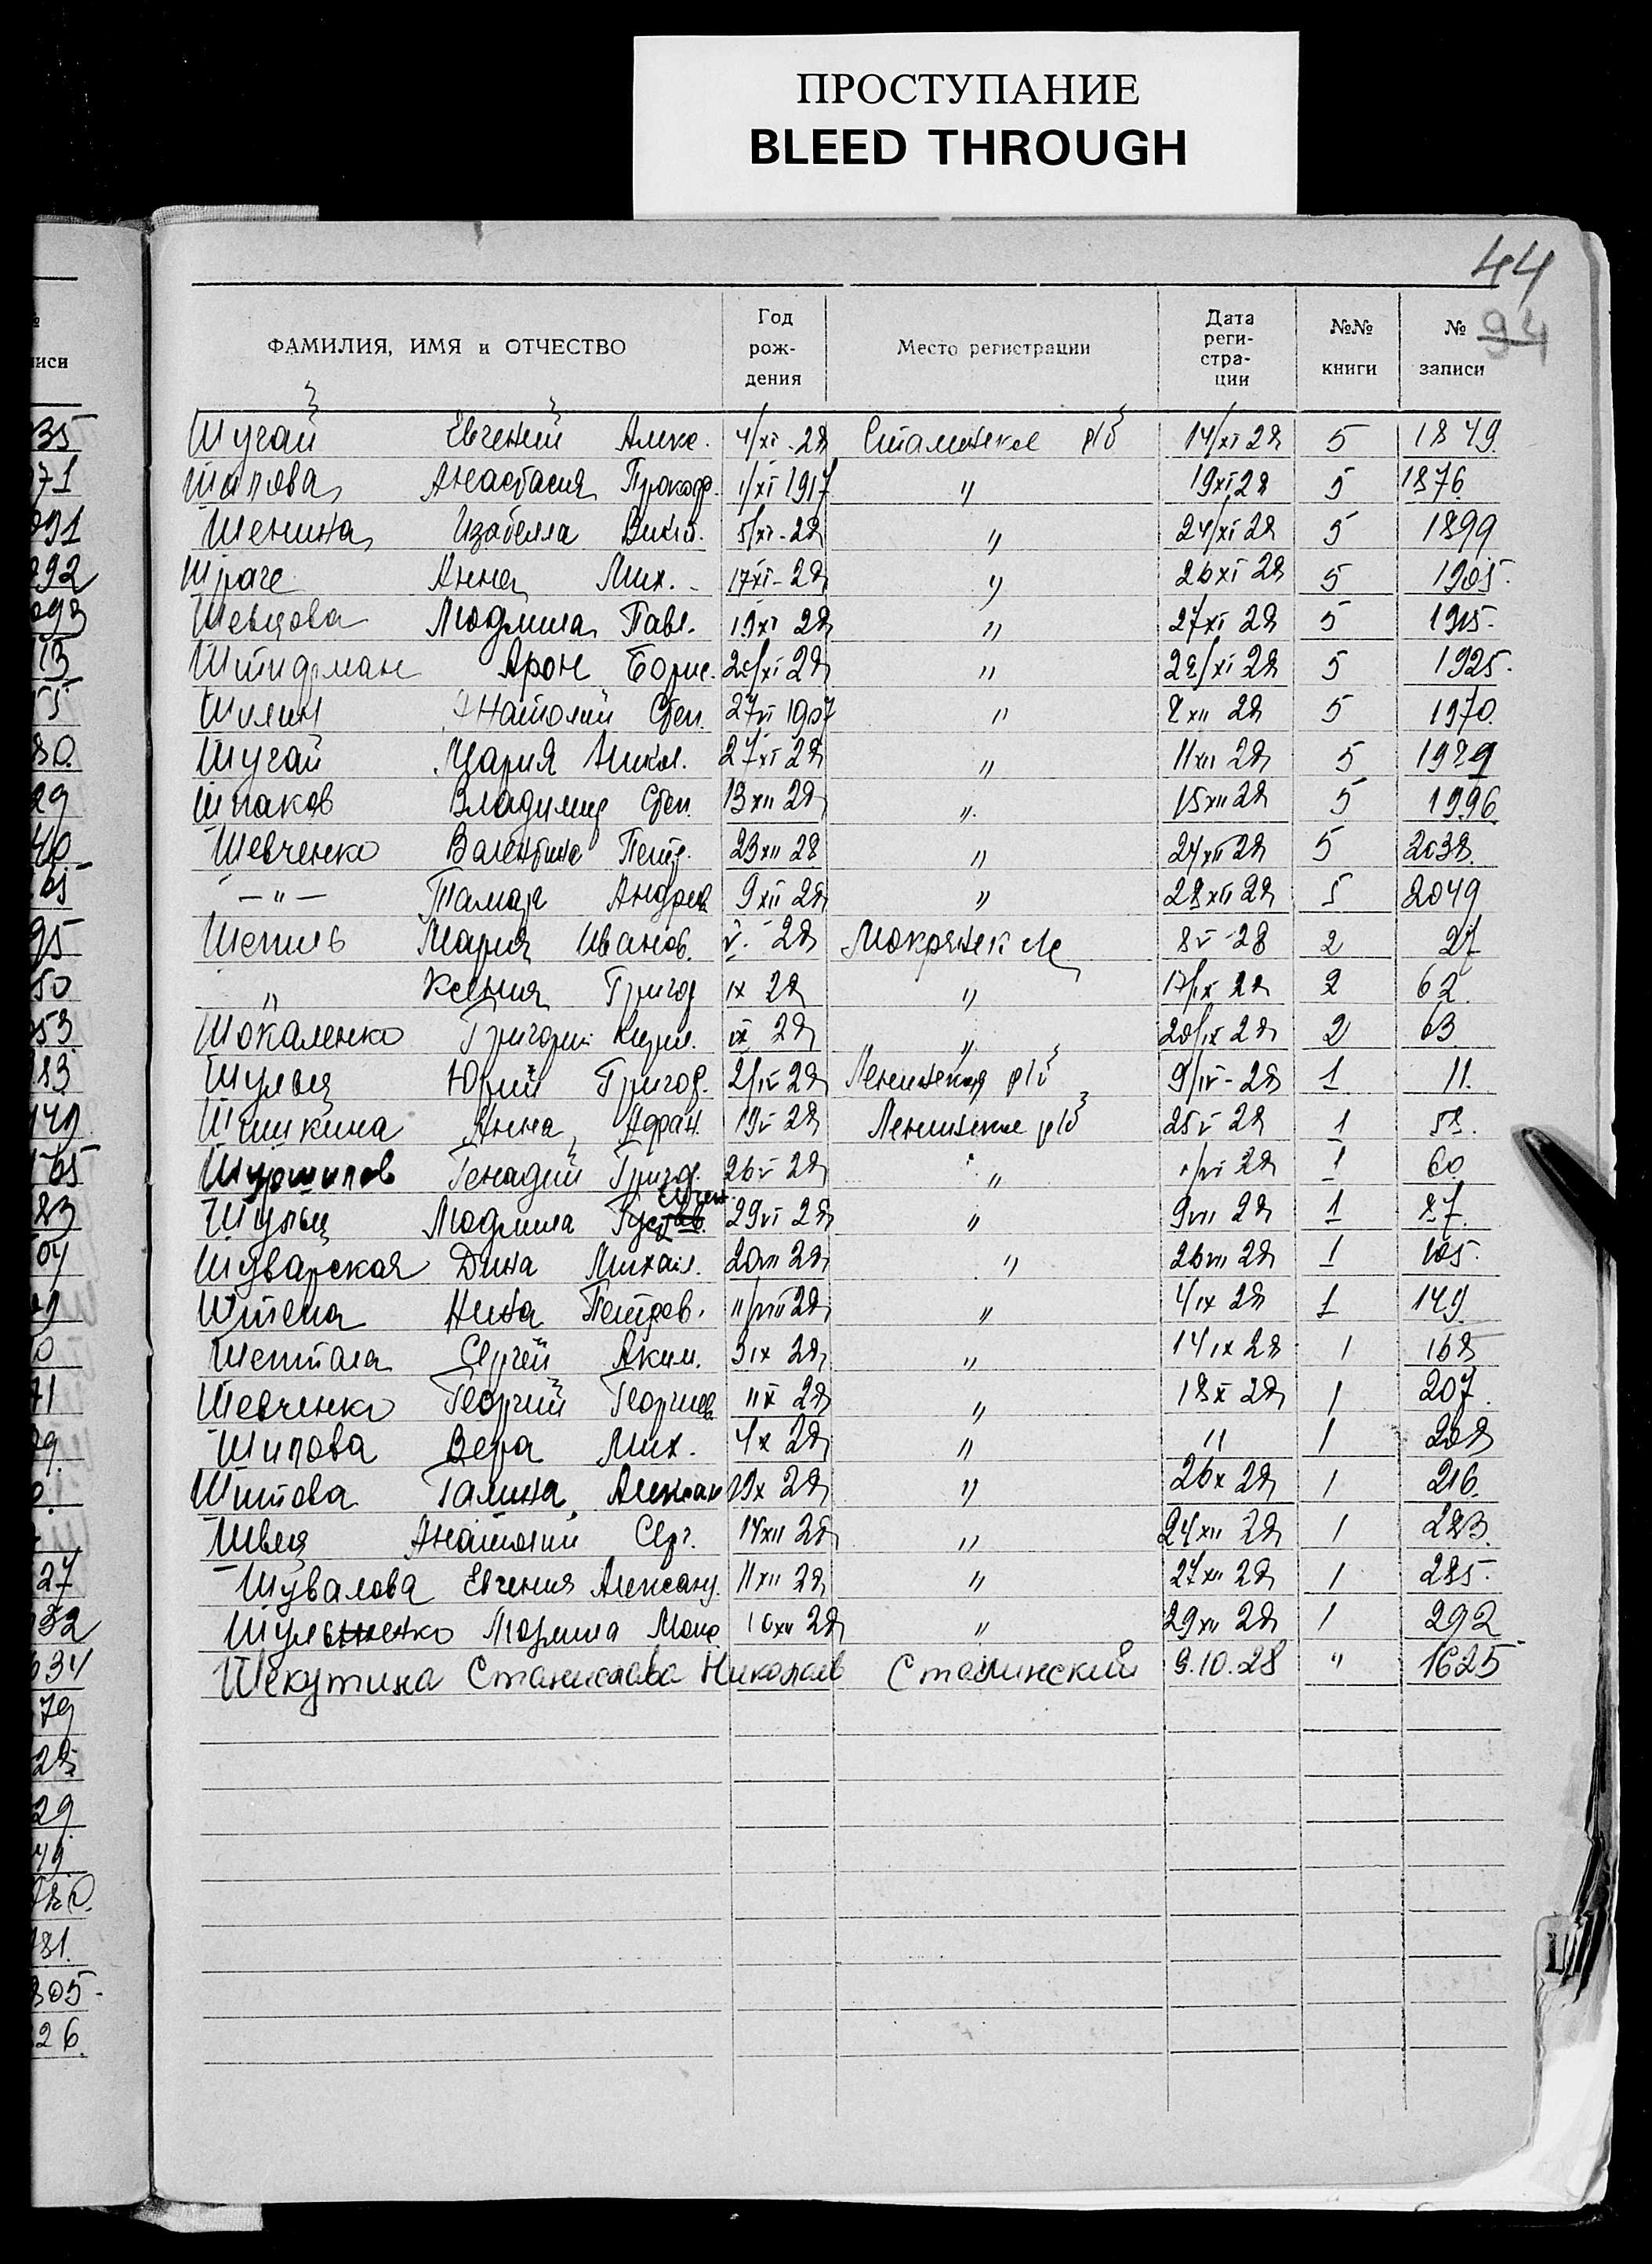 ПРОСТУПАНИЕ
BLEED THROUGH
44
94
ФАМИЛИЯ, ИМЯ и ОТЧЕСТВО Год рождения Место регистрации Дата регистрации №№ книги № записи
Шугай Евгений Алекс. 4/XI-28 Сталинское р/б 14/XI 28 5 1849
Шипова Анастасия Прокоф. 1/XI 1917 " 19XI28 5 1876
Шенина Изабелла Викт. 5/XI-28 " 24/XI 28 5 1899
Шраге Анна Мих. 17XI-28 " 26XI 28 5 1905.
Шевцова Людмила Павл. 19XI 28 " 27XI 28 5 1915.
Штидрман Арон Борис. 28/XI 28 " 28/XI 28 5 1925.
Шилин Анатолий Степ. 27VI 1907 " 8XII 28 5 1970.
Шугай Мария Никол. 27XI 28 " 11XII 28 5 1989
Шпаков Владимир Степ. 13XII 28 " 15XII 28 5 1996.
Шевченко Валентина Петр. 23XII 28 " 24XII 28 5 2038.
— " — Тамара Андреев 9XII 28 " 28XII 28 5 2049
Шепиль Мария Иванов. V. 28 8V-28 2 27
" Ксения Григор IX 28 " 17/IX 28 2 62.
Шокаленко Григорий Кирил. IX 28 " 20/IX 28 2 63.
Шульц Юрий Григор. 2/IV 28 Ленинское р/б 9/IV-28 1 11.
Шишкина Анна Афан. 19V 28 Ленинское р/б 25V 28 1 58.
Шуршилов Генадий Григор. 26V 28 " 1/VI 28 1 60.
Шульц Людмила Густав. 29VI 28 " 9VII 28 1 87.
Шуварская Дина Михайл. 20VII 28 " 26VII 28 1 105.
Штепа Нина Петров. 11/VIII 28 " 4/IX 28 1 149.
Шептала Сергей Аким. 3IX 28 " 14IX 28 1 168
Шевченко Георгий Георгиев 11X 28 " 18X 28 1 207.
Шипова Вера Мих. 4X 28 " " 1 208
Шитова Галина Алексан 19X 28 " 26X 28 1 216.
Швец Анатолий Серг. 14XII 28 " 24XII 28 1 283.
Шувалова Евгения Александ. 11XII 28 " 27XII 28 1 285.
Шульженко Людмила 16XII 28 " 29XII 28 1 292
Шекутина Станислава Николаев Сталинский 9.10.28 " 1625